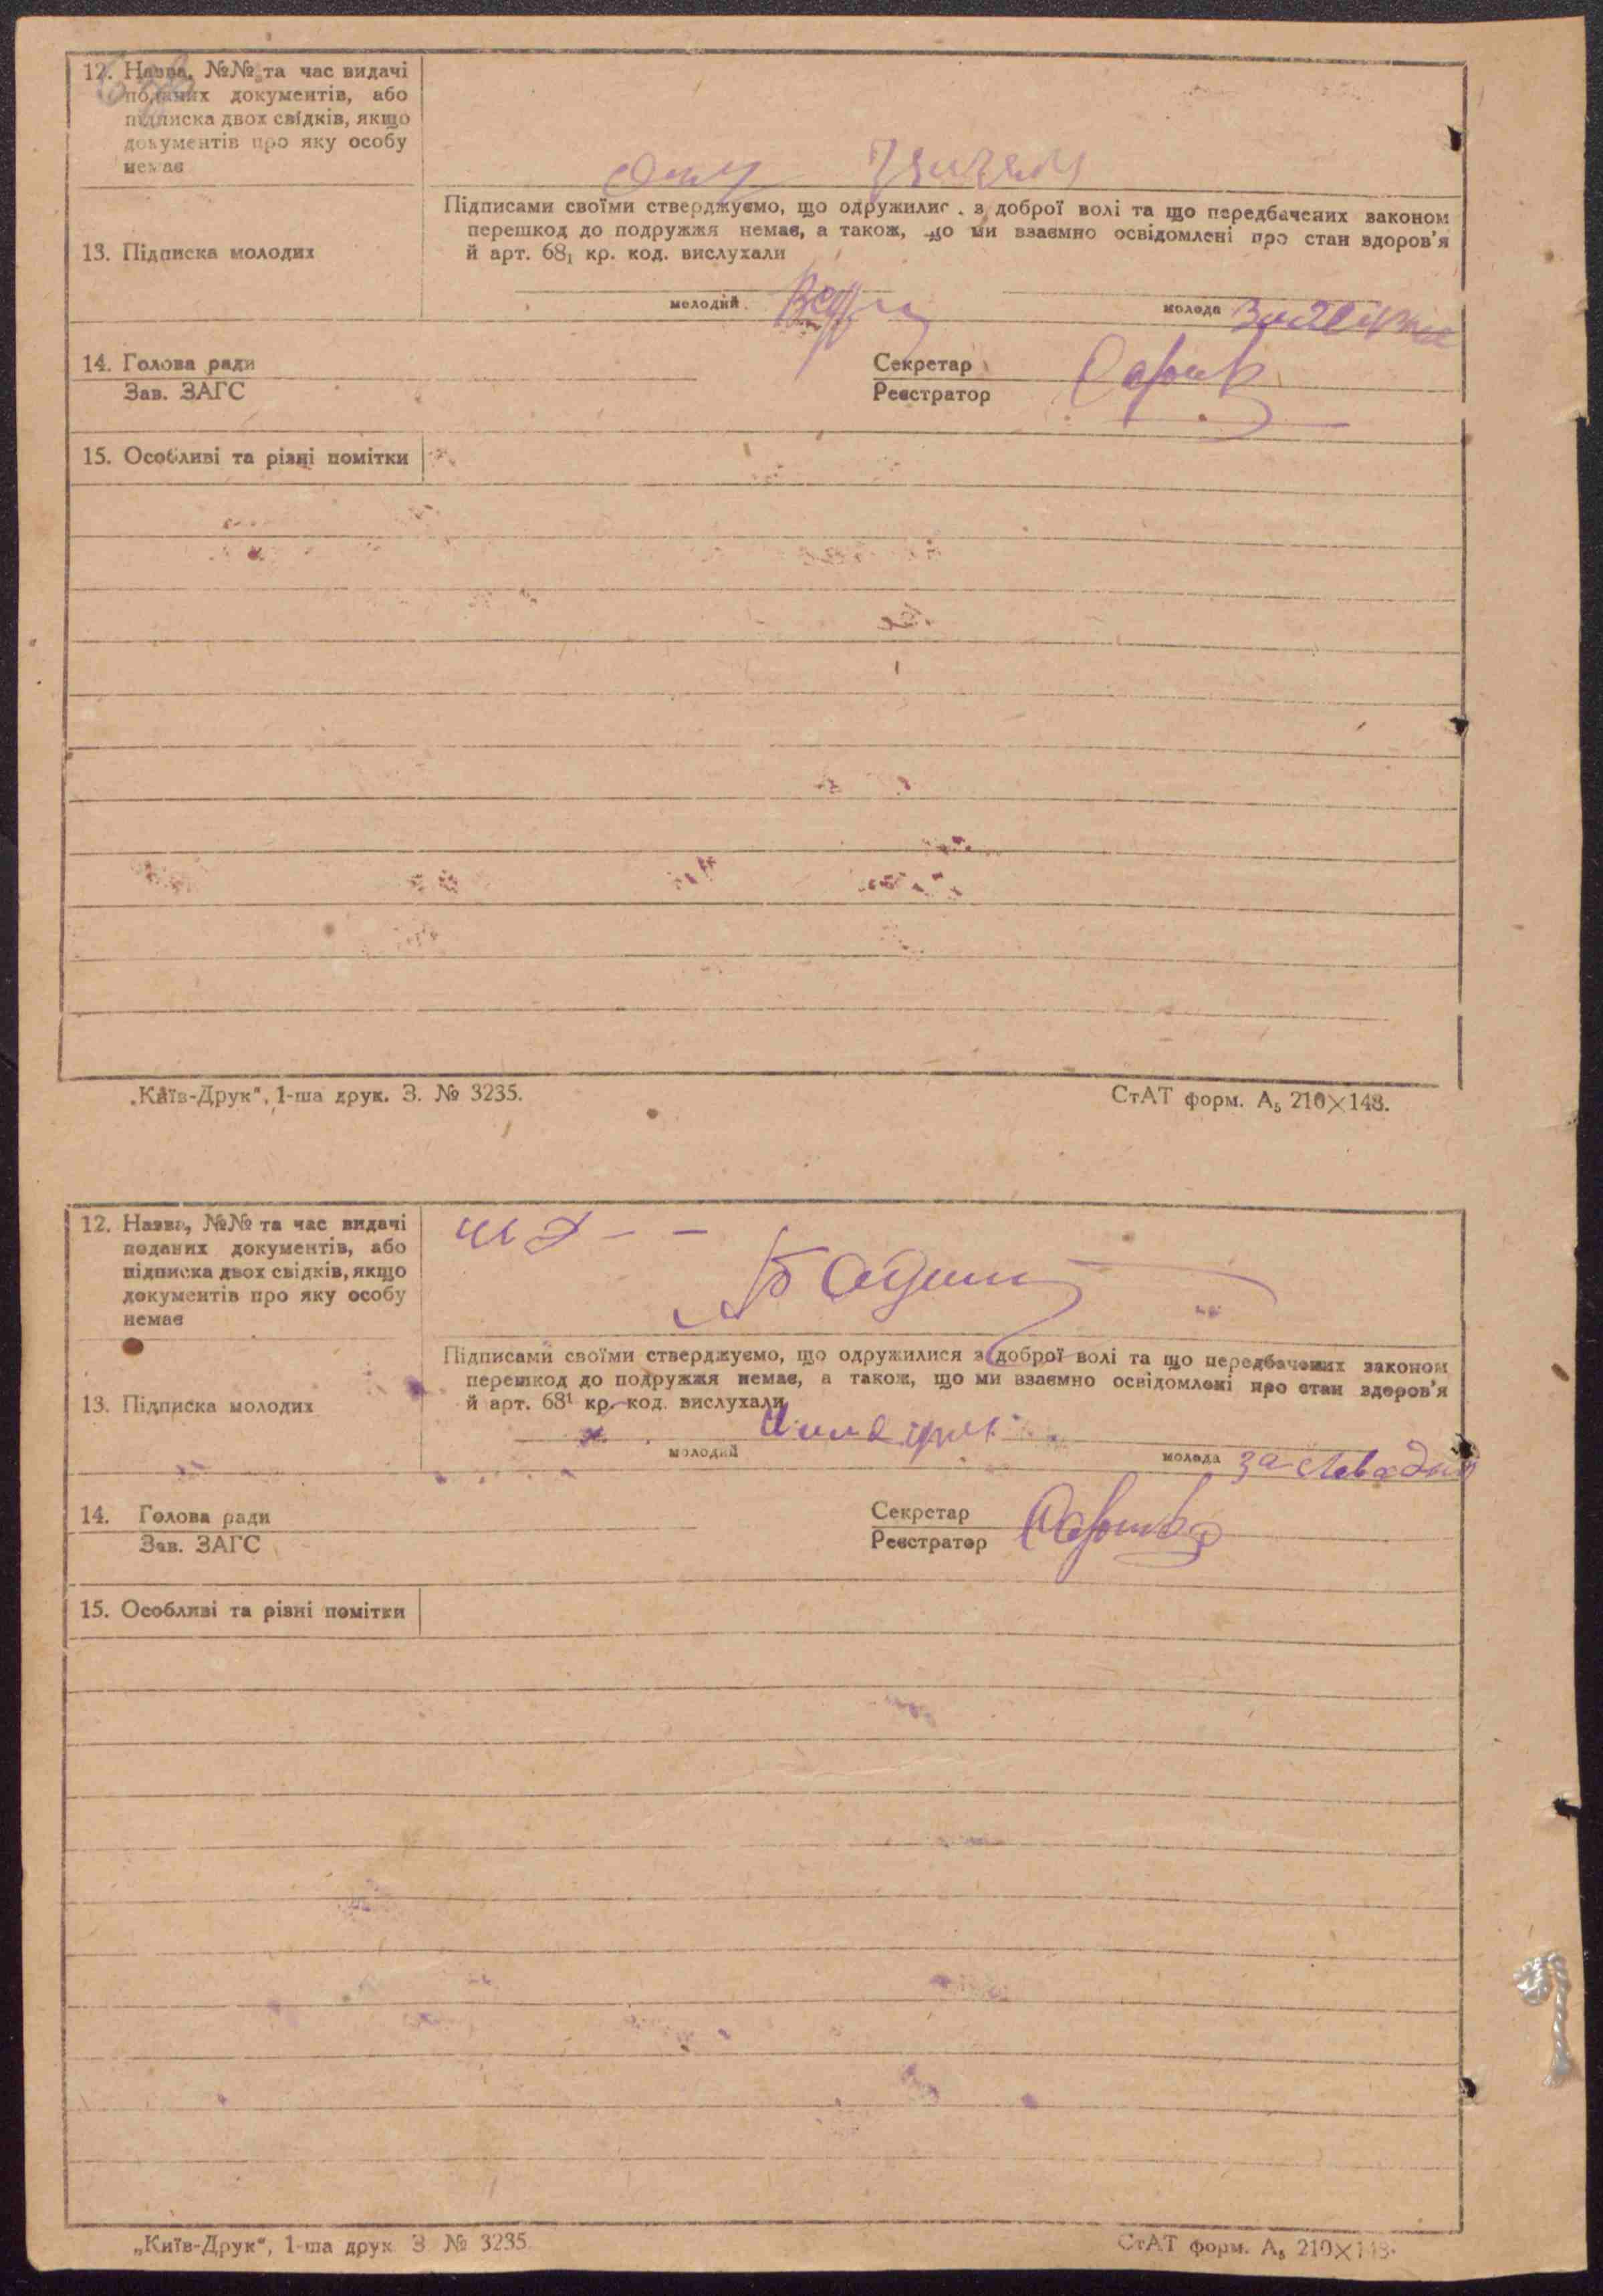 12. Назва, №№ та час видачі
поданих документів, або
підписка двох свідків, якщо
документів про яку особу
немає
Підписами своїми стверджуємо, що одружилис з доброї волі та що передбачених законом
перешкод до подружжя немає, а також, що ми взаємно освідомлені про стан здоров'я
й арт. 68₁ кр. код. вислухали
13. Підписка молодих
молодий
молода
14. Голова ради
Секретар
Зав. ЗАГС
Реєстратор
15. Особливі та різні помітки
„Київ-Друк“, 1-ша друк. З. № 3235.
СтАТ форм. А₅ 210×148.
12. Назва, №№ та час видачі
поданих документів, або
підписка двох свідків, якщо
документів про яку особу
немає
Підписами своїми стверджуємо, що одружилися з доброї волі та що передбачених законом
перешкод до подружжя немає, а також, що ми взаємно освідомлені про стан здоров'я
й арт. 68¹ кр. код. вислухали
13. Підписка молодих
молодий
молода за
14. Голова ради
Секретар
Зав. ЗАГС
Реєстратор
15. Особливі та різні помітки
„Київ-Друк“, 1-ша друк З № 3235
СтАТ форм. А₅ 210×148.